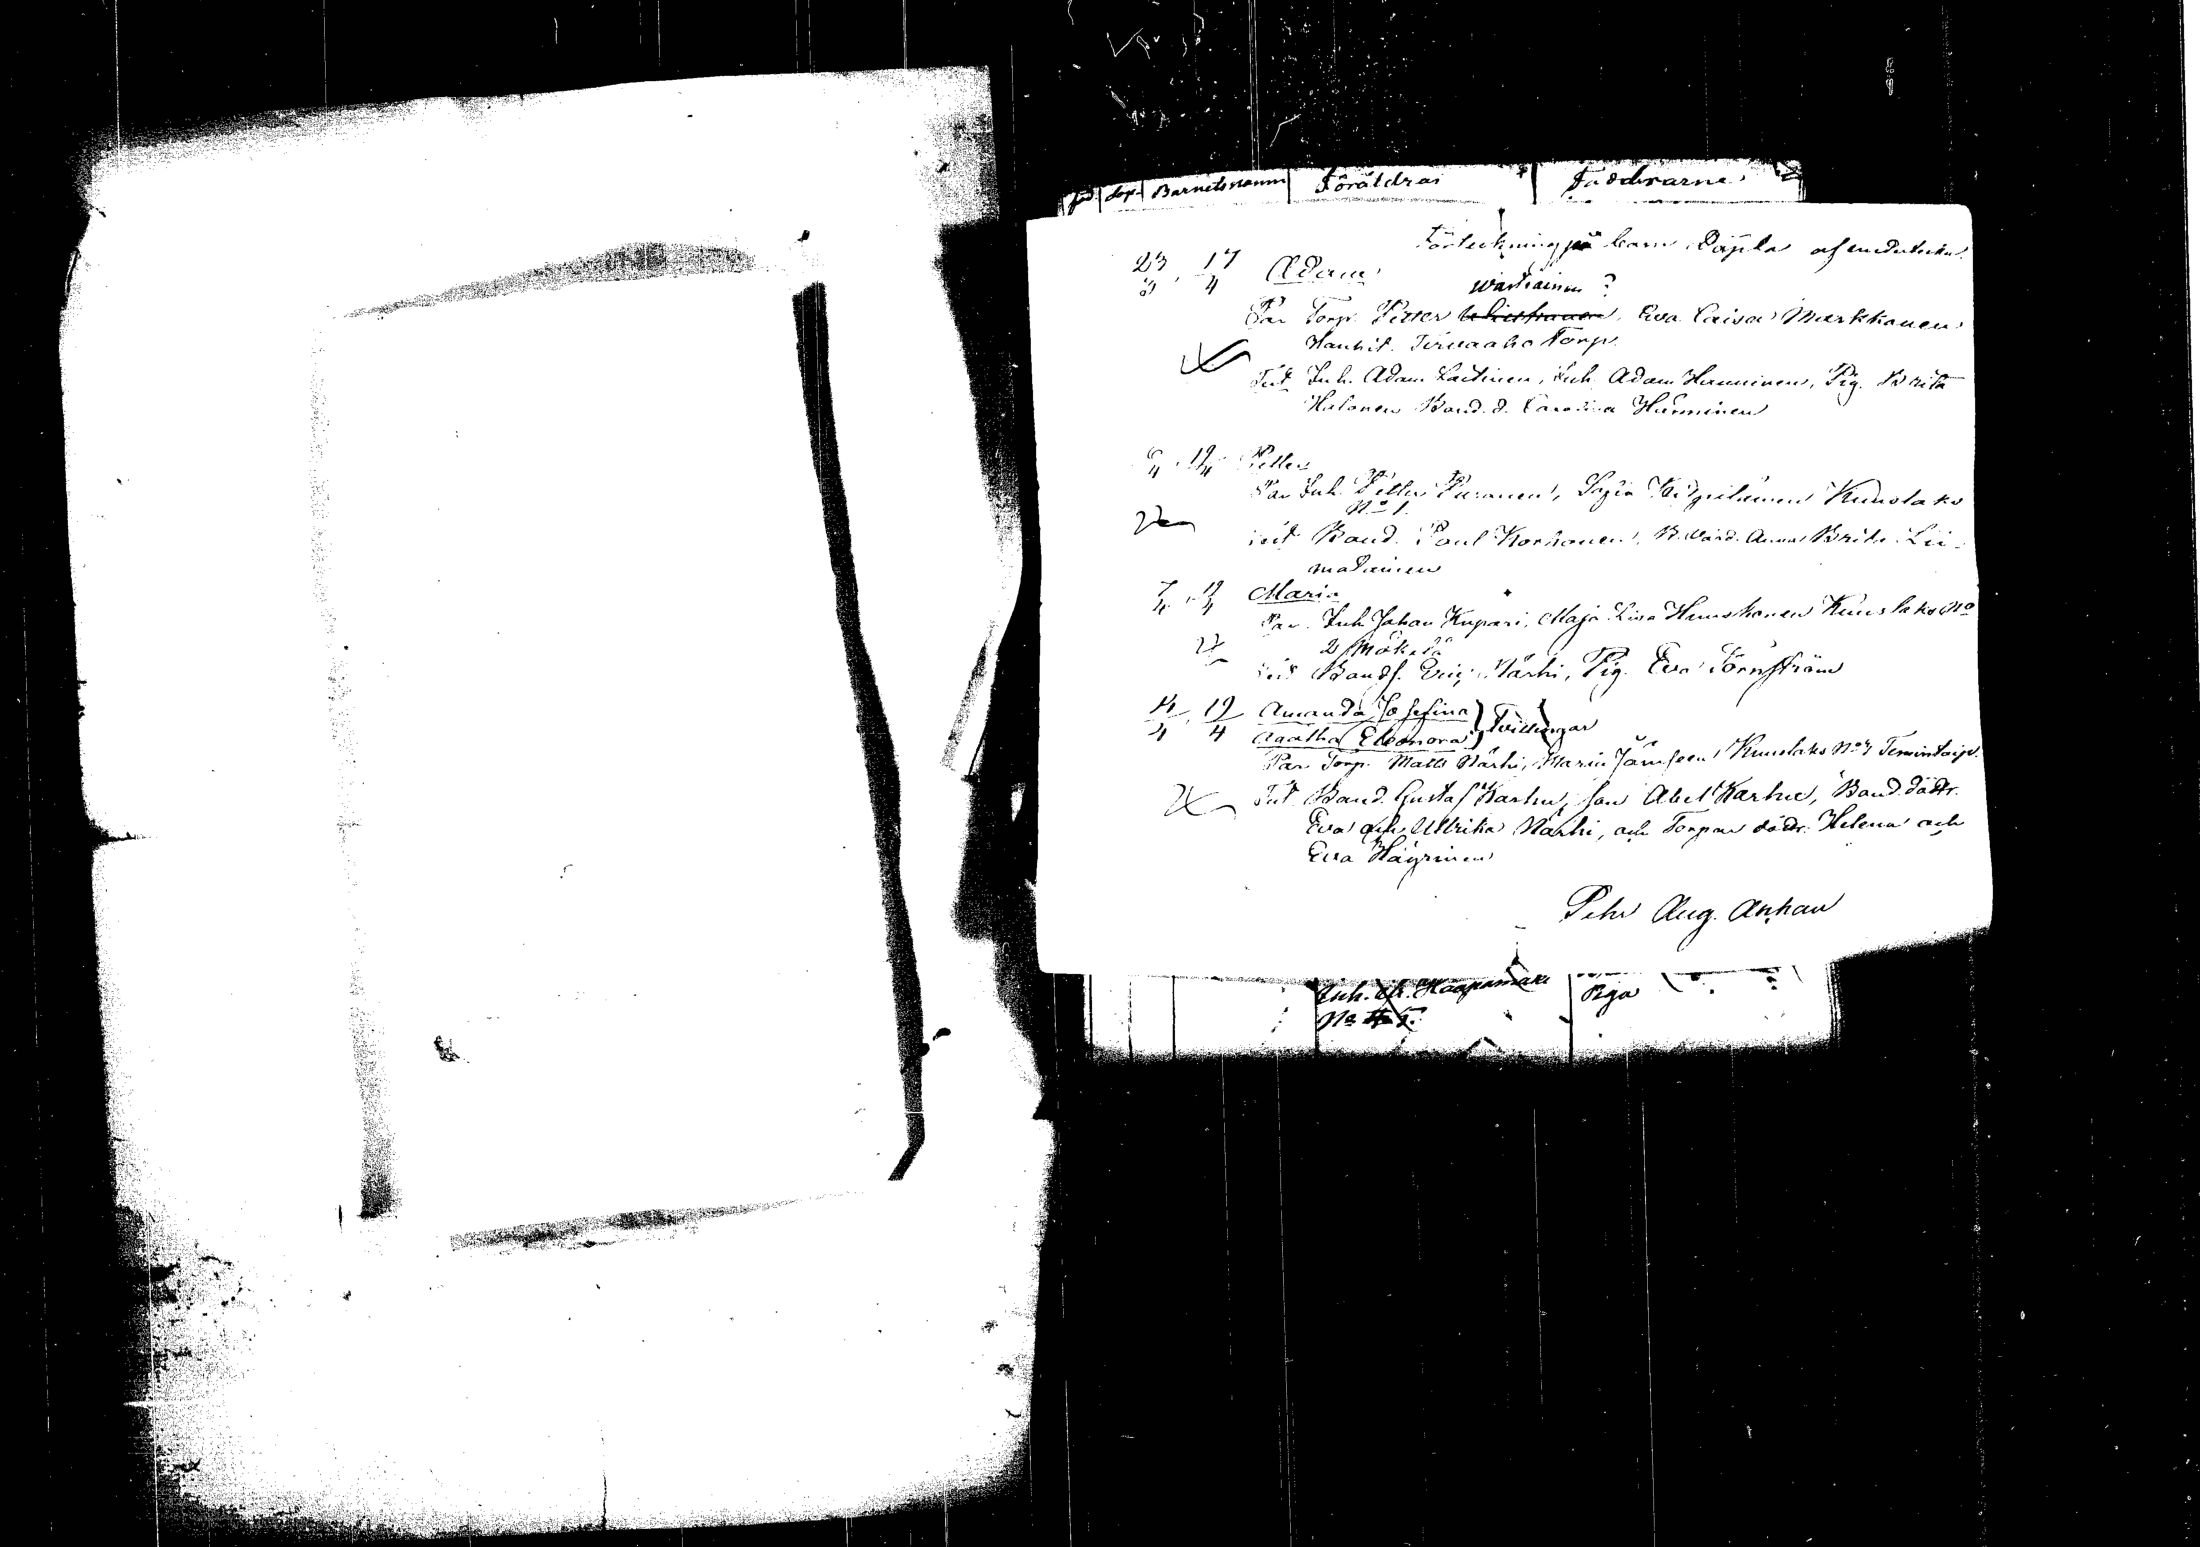 Föd. döp. Barnets namn Föräldrar Faddrarne
Förteckning på barn döpta af undertekn.
23/3 . 17/4 Adam
Wästiäinen ?
Par Torp. Petter Eva Caisa Markkanen
Hankit. Terwaaho Torp.
Test Inh. Adam Laitinen, Inh. Adam Hänninen, Pig. Brita
Halonen Bond. d. Carolina Hänninen
6/4 . 19/4 Petter
Par Inh. Petter Puranen, Sofia Kuuslaks
No 1.
Test Bond. Paul Korhonen, B. värd. Anna Brita Lii-
matainen
7/4 . 19/4 Maria
Par. Inh. Johan Kupari, Maja Lisa Kuuslaks No
2 Mökelä
Test Bonds. Eric Närhi, Pig. Eva Törnström
14/4 . 19/4 Amanda Josefina
Agatha Eleonora Tvillingar
Par Torp. Matts Närhi, Maria Jämseen Kuuslaks No 4
Test Bond. Gustaf Karhu, son Abel Karhu, Bond. dödtr.
Eva och Ullrika Närhi, och Torpar dödtr. Helena och
Eva Häyrinen
Pehr Aug. Anhau
Inh. Haapamäki Piga
No